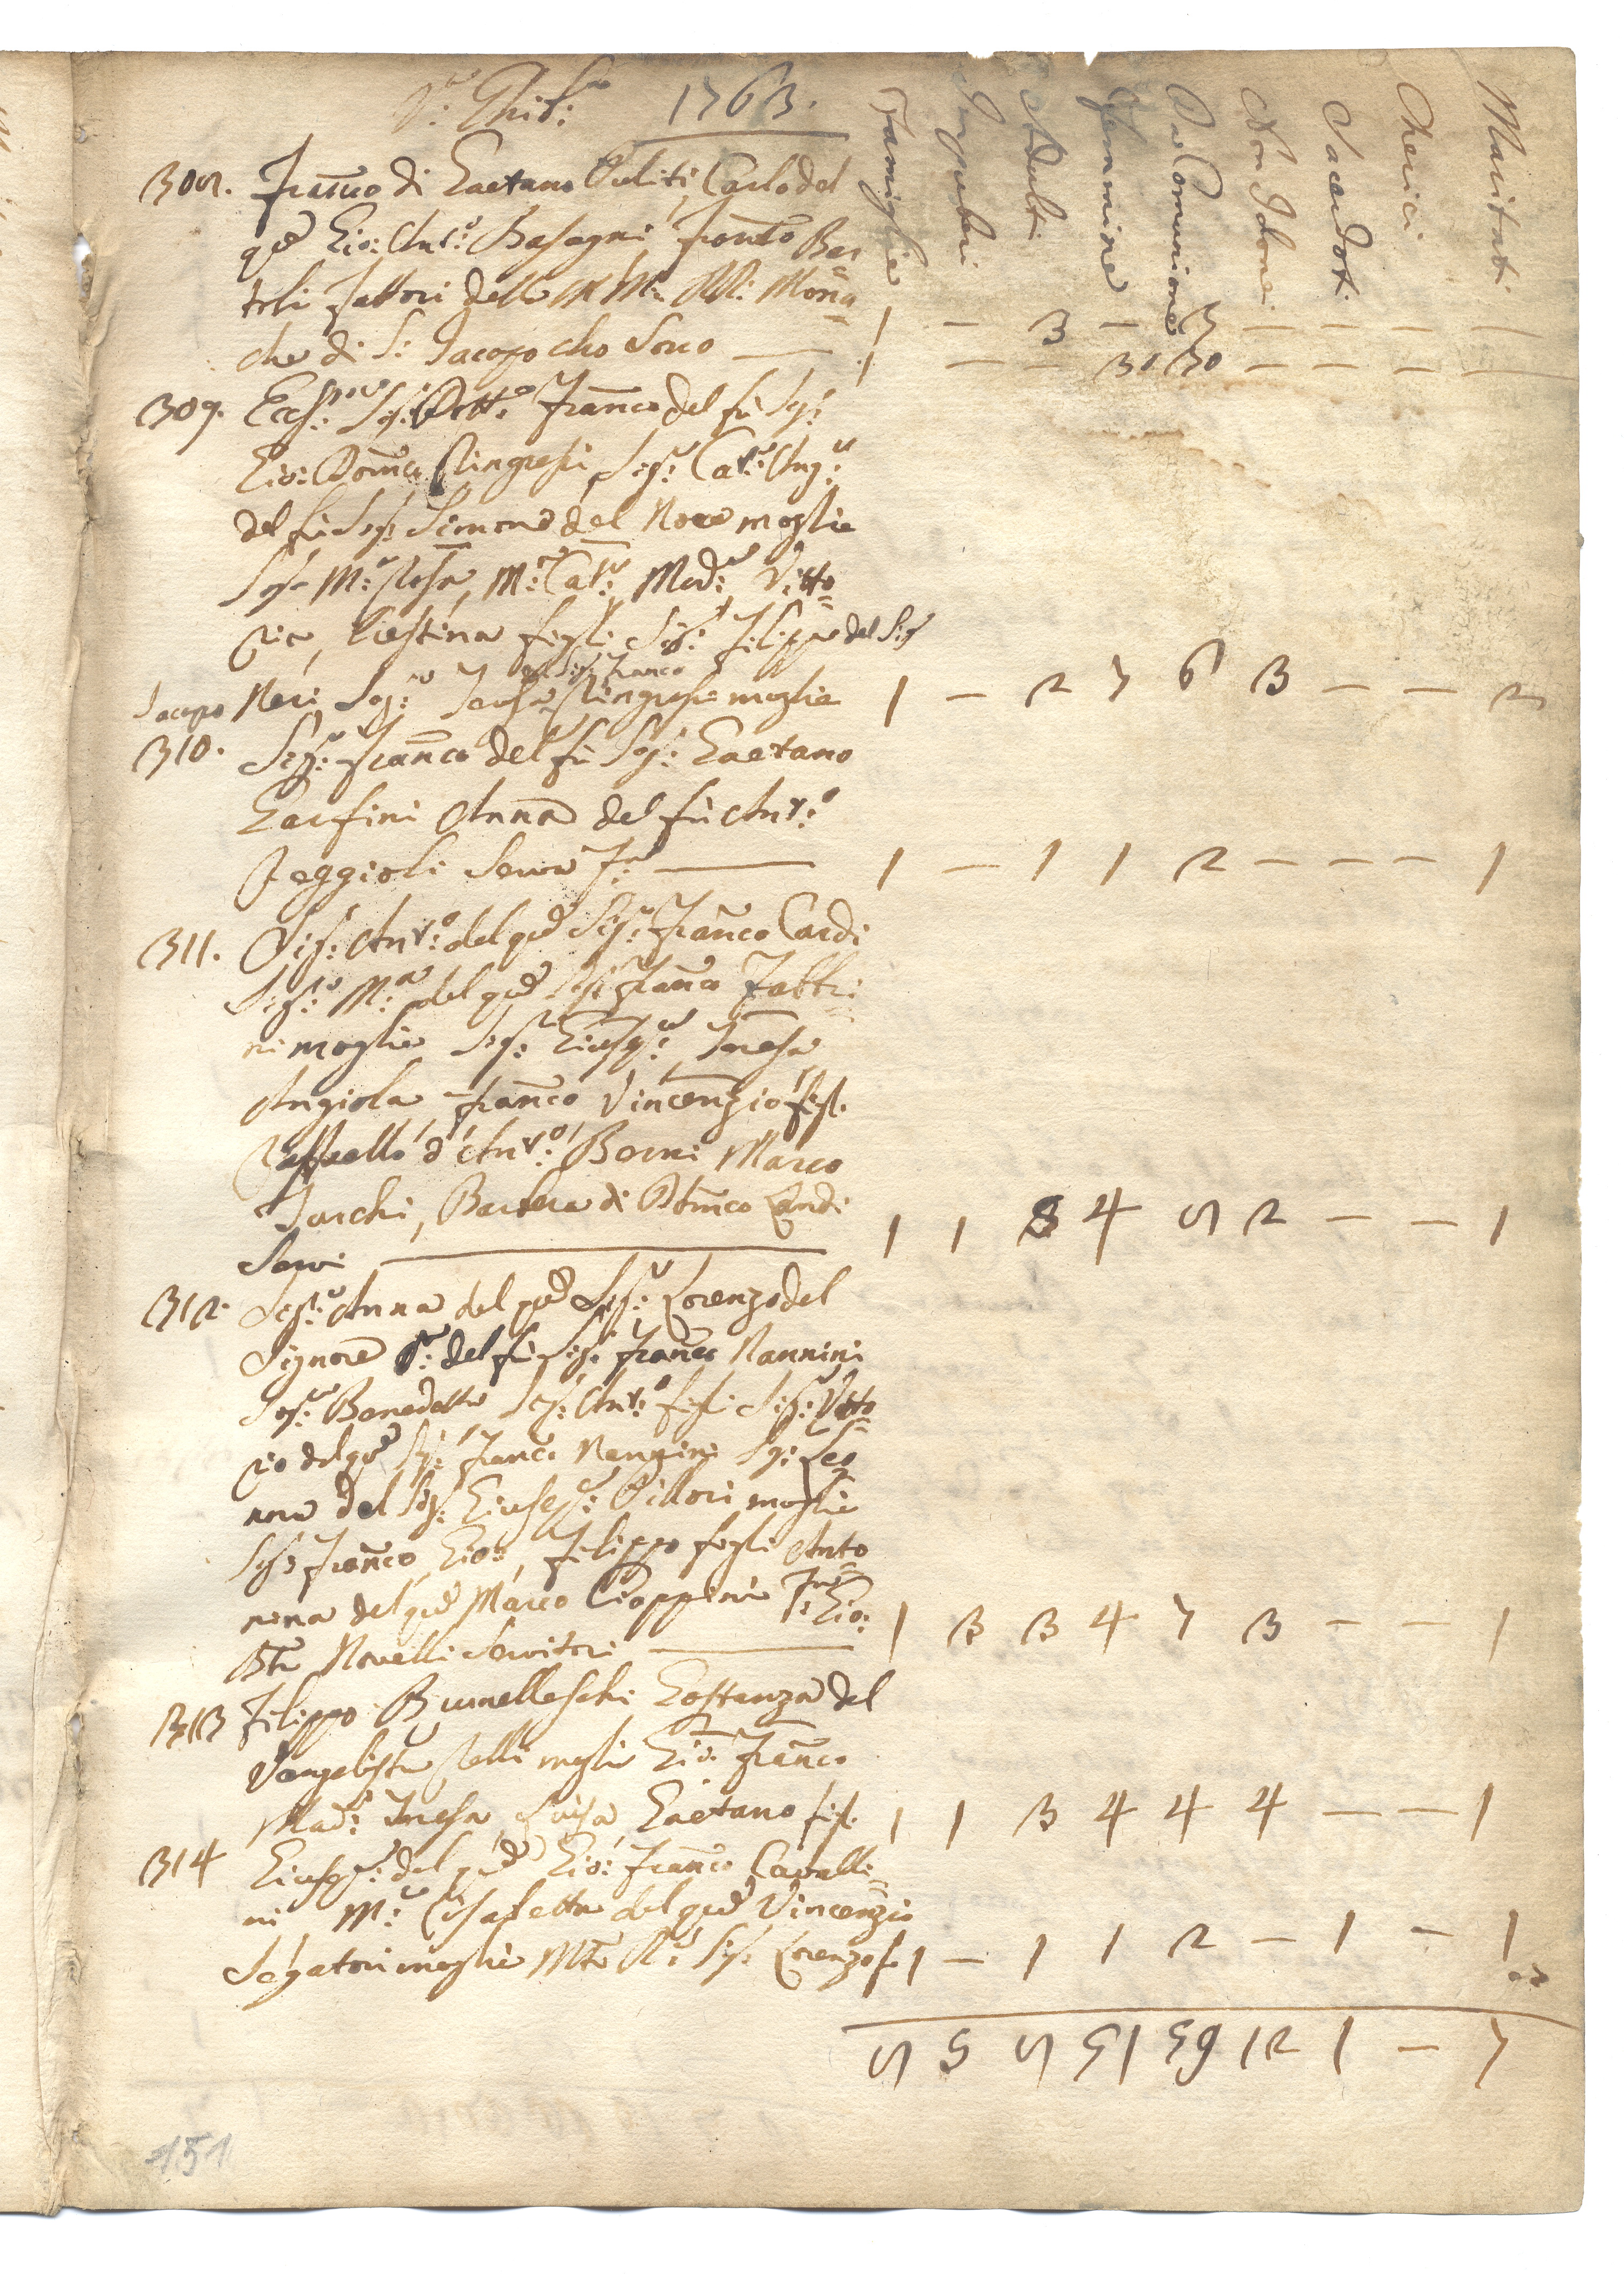 Va: Ghib:na 1763.
Famiglie Impuberi Adulti Femmine Da Comunione Non Idonei Sacerdoti Cherici Maritati
308. Franco di Gaetano Puliti, Carlo del
qm Gio: Ant:o Basagni,
Fattori delle M: RR: Mona=
che di S: Jacopo che sono — 1 – 3 – 3 – – – –
1 – – 30 30 – – – –
309. Ecc: Sig: Dott:e Franco del fù Sig:
Gio: Domco Ringressi, Sig:a Cat:a Ang:a
del fù Sig: Simone del Nove moglie
Sig:a M:a Rosa, M:a Cat:a Mad:a Vitto=
ria, Cristina figli Sig: Filippo del Sig
del Sig: Franco
Jacopo Neri, Sig:a Ringressi moglie 1 – 2 7 6 3 – – 2
310. Sig: Franco del fù Sig: Gaetano
Garfini Anna del fù Ant:o
Reggioli Serva — 1 – 1 1 2 – – – 1
311. Sig: Ant:o del qm Sig: Franco Cardi
Sig:a M:a del qm Sig: Franco Fabbri
ni moglie Sig: Giusep:e Teresa
Angiola Franco Vincenzio figl.
Raffaello d'Ant:o Berni Marco
Turchi, Barbera di Domco Landi
Servi — 1 1 3 4 5 2 – – 1
312. Sig:a Anna del qm Sig: Lorenzo del
Signore V:a del fù Sig: Franco Nannini
Sig:a Benedetta Sig: Ant:o figli Sig: Vitto=
rio del qm Sig: Franco Nannini Sig: Leo
nora del Sig: Giusep:e Pittori moglie
Sig: Franco, Gio:, Filippo figli Anto=
nina del qm Marco Cioppini Gio:
Bta Novelli Servitori — 1 3 3 4 7 3 – – 1
313 Filippo Brunelleschi Gostanza del
Vangelista Relli moglie Gio: Franco
Mad:a Teresa Luisa, Gaetano figl. 1 1 3 4 4 4 – – 1
314 Giusep:e del qm Gio: Franco Cavalli=
ni M:a Elisabetta del qm Vincenzio
Segatori moglie Mto R:o Sig: Lorenzo f. 1 – 1 1 2 – 1 – 1
151